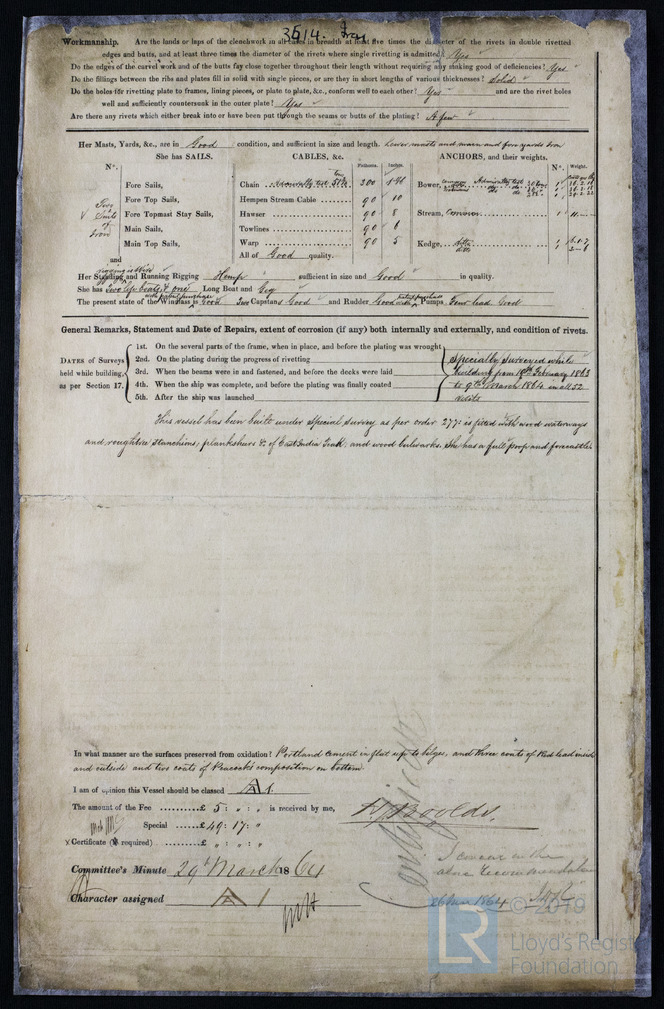 3614. Iron
Workmanship. Are the lands or laps of the clenchwork in all cases in breadth at least five times the diameter of the rivets in double rivetted
edges and butts, and at least three times the diameter of the rivets where single rivetting is admitted? Yes
Do the edges of the carvel work and of the butts fay close together throughout their length without requiring any making good of deficiencies? Yes
Do the fillings between the ribs and plates fill in solid with single pieces, or are they in short lengths of various thicknesses? Solid
Do the holes for rivetting plate to frames, lining pieces, or plate to plate, &c., conform well to each other? Yes and are the rivet holes
well and sufficiently countersunk in the outer plate? Yes
Are there any rivets which either break into or have been put through the seams or butts of the plating? A few
Her Masts, Yards, &c., are in Good condition, and sufficient in size and length. Lower masts and main and fore yards Iron
She has SAILS. CABLES, &c. Fathoms. Inches. ANCHORS, and their weights.
N°. N°. Weight.
Fore Sails, Chain 300
Fore Top Sails, Hempen Stream Cable 90 10 Bower,
Fore Topmast Stay Sails, Hawser 90 8 Stream, Common 1 11
Main Sails, Towlines 90 6
Main Top Sails, Warp 90 5 Kedge, ditto
Two Suits of Iron
All of Good quality. ditto
and
rigging is Wire
Her Standing and Running Rigging Hemp sufficient in size and Good in quality.
She has Two life boats, & one Long Boat and Gig
with patent purchase
The present state of the Windlass is Good Two Capstans Good and Rudder Good with patent purchase Pumps Four lead Good
General Remarks, Statement and Date of Repairs, extent of corrosion (if any) both internally and externally, and condition of rivets.
DATES of Surveys held while building, as per Section 17.
1st. On the several parts of the frame, when in place, and before the plating was wrought
2nd. On the plating during the progress of rivetting
3rd. When the beams were in and fastened, and before the decks were laid
4th. When the ship was complete, and before the plating was finally coated
5th. After the ship was launched
Specially surveyed while
building from 18th February 1863
to 9th March 1864 in all 52
visits
This vessel has been built under Special Survey as per order 277: is fitted with wood waterways
and roughtree stanchions, planksheer &c of East India Teak, and wood bulwarks. She has a full poop and forecastle
In what manner are the surfaces preserved from oxidation? Portland cement in flat up to bilges, and three coats of Red lead inside
and outside and two coats of Peacock's composition on bottom
I am of opinion this Vessel should be classed A 1
The amount of the Fee £ 5 : " : " is received by me,
Special £ 49 : 17 : "
Certificate (if required) £ " : " : "
Committee's Minute 29th March 1864
Character assigned A 1
I concur in the
above recommendation
26 Mar 1864
© 2019
LR
Lloyd's Register
Foundation